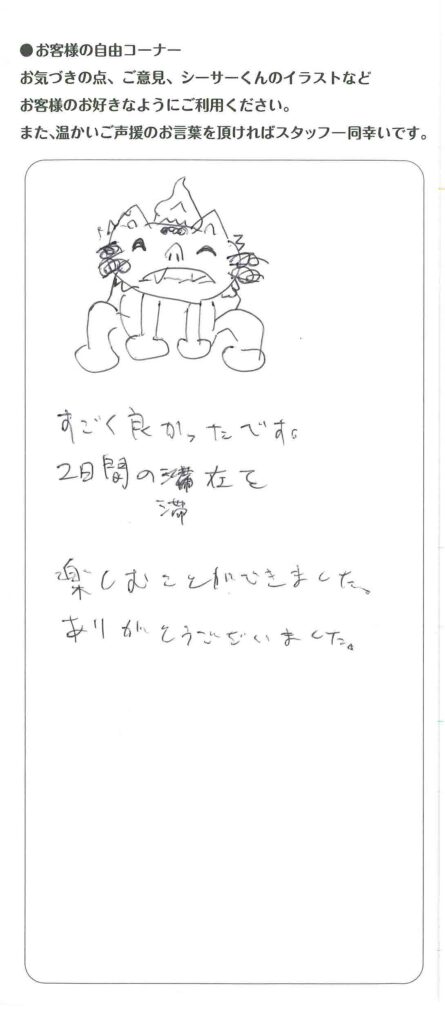 ●お客様の自由コーナー
お気づきの点、ご意見、シーサーくんのイラストなど
お客様のお好きなようにご利用ください。
また、温かいご声援のお言葉を頂ければスタッフ一同幸いです。
すごく良かったです。
2日間の滞在を
滞
楽しむことができました。
ありがとうございました。